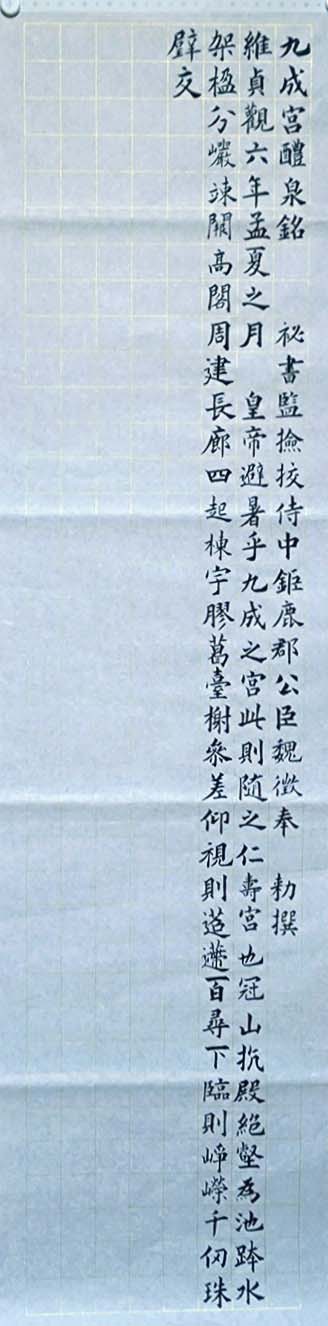 九成宮醴泉銘 祕書監撿挍侍中鉅鹿郡公臣魏徵奉 勑撰
維貞觀六年孟夏之月 皇帝避暑乎九成之宮此則隨之仁壽宮也冠山抗殿絕壑為池跨水
架楹分巖竦闕高閣周建長廊四起棟宇膠葛臺榭叅差仰視則迢遰百尋下臨則崢嶸千仞珠
璧交